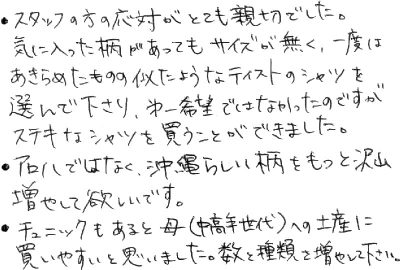 ・スタッフの方の応対がとても親切でした。
気に入った柄があってもサイズが無く、一度は
あきらめたものの似たようなテイストのシャツを
選んで下さり、第一希望ではなかったのですが
ステキなシャツを買うことができました。
・アロハではなく、沖縄らしい柄をもっと沢山
増やして欲しいです。
・チュニックもあると母(中高年世代)への土産に
買いやすいと思いました。数と種類を増やして下さい。